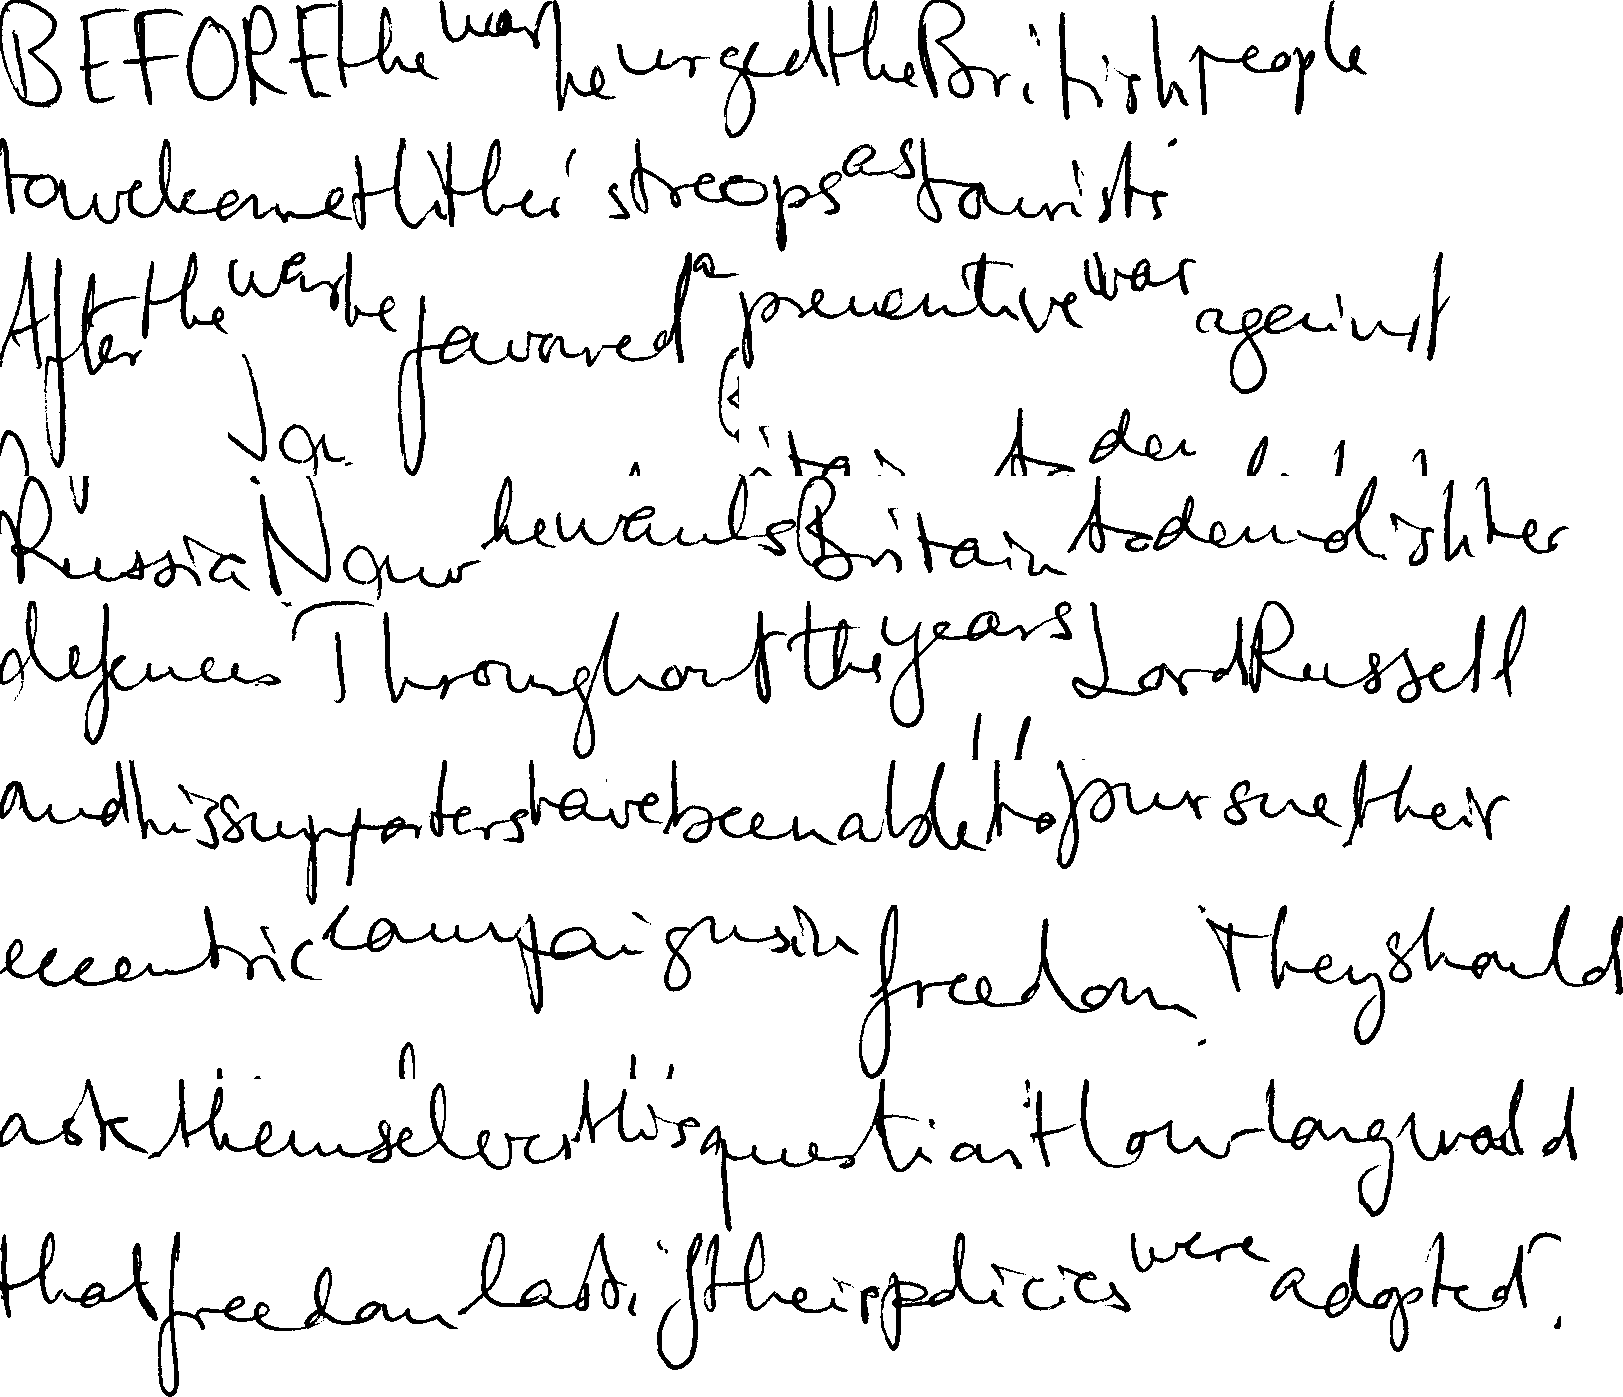 BEFORE the war he urged the British people
to welcome Hitler's troops as tourists
After the war he favoured a preventive war against
Russia Now he wants Britain to demolish her
defences Throughout the years Lord Russell
and his supporters have been able to pursue their
eccentric campaigns in freedom. They should
ask themselves this question: How long would
that freedom last if their policies were adopted.